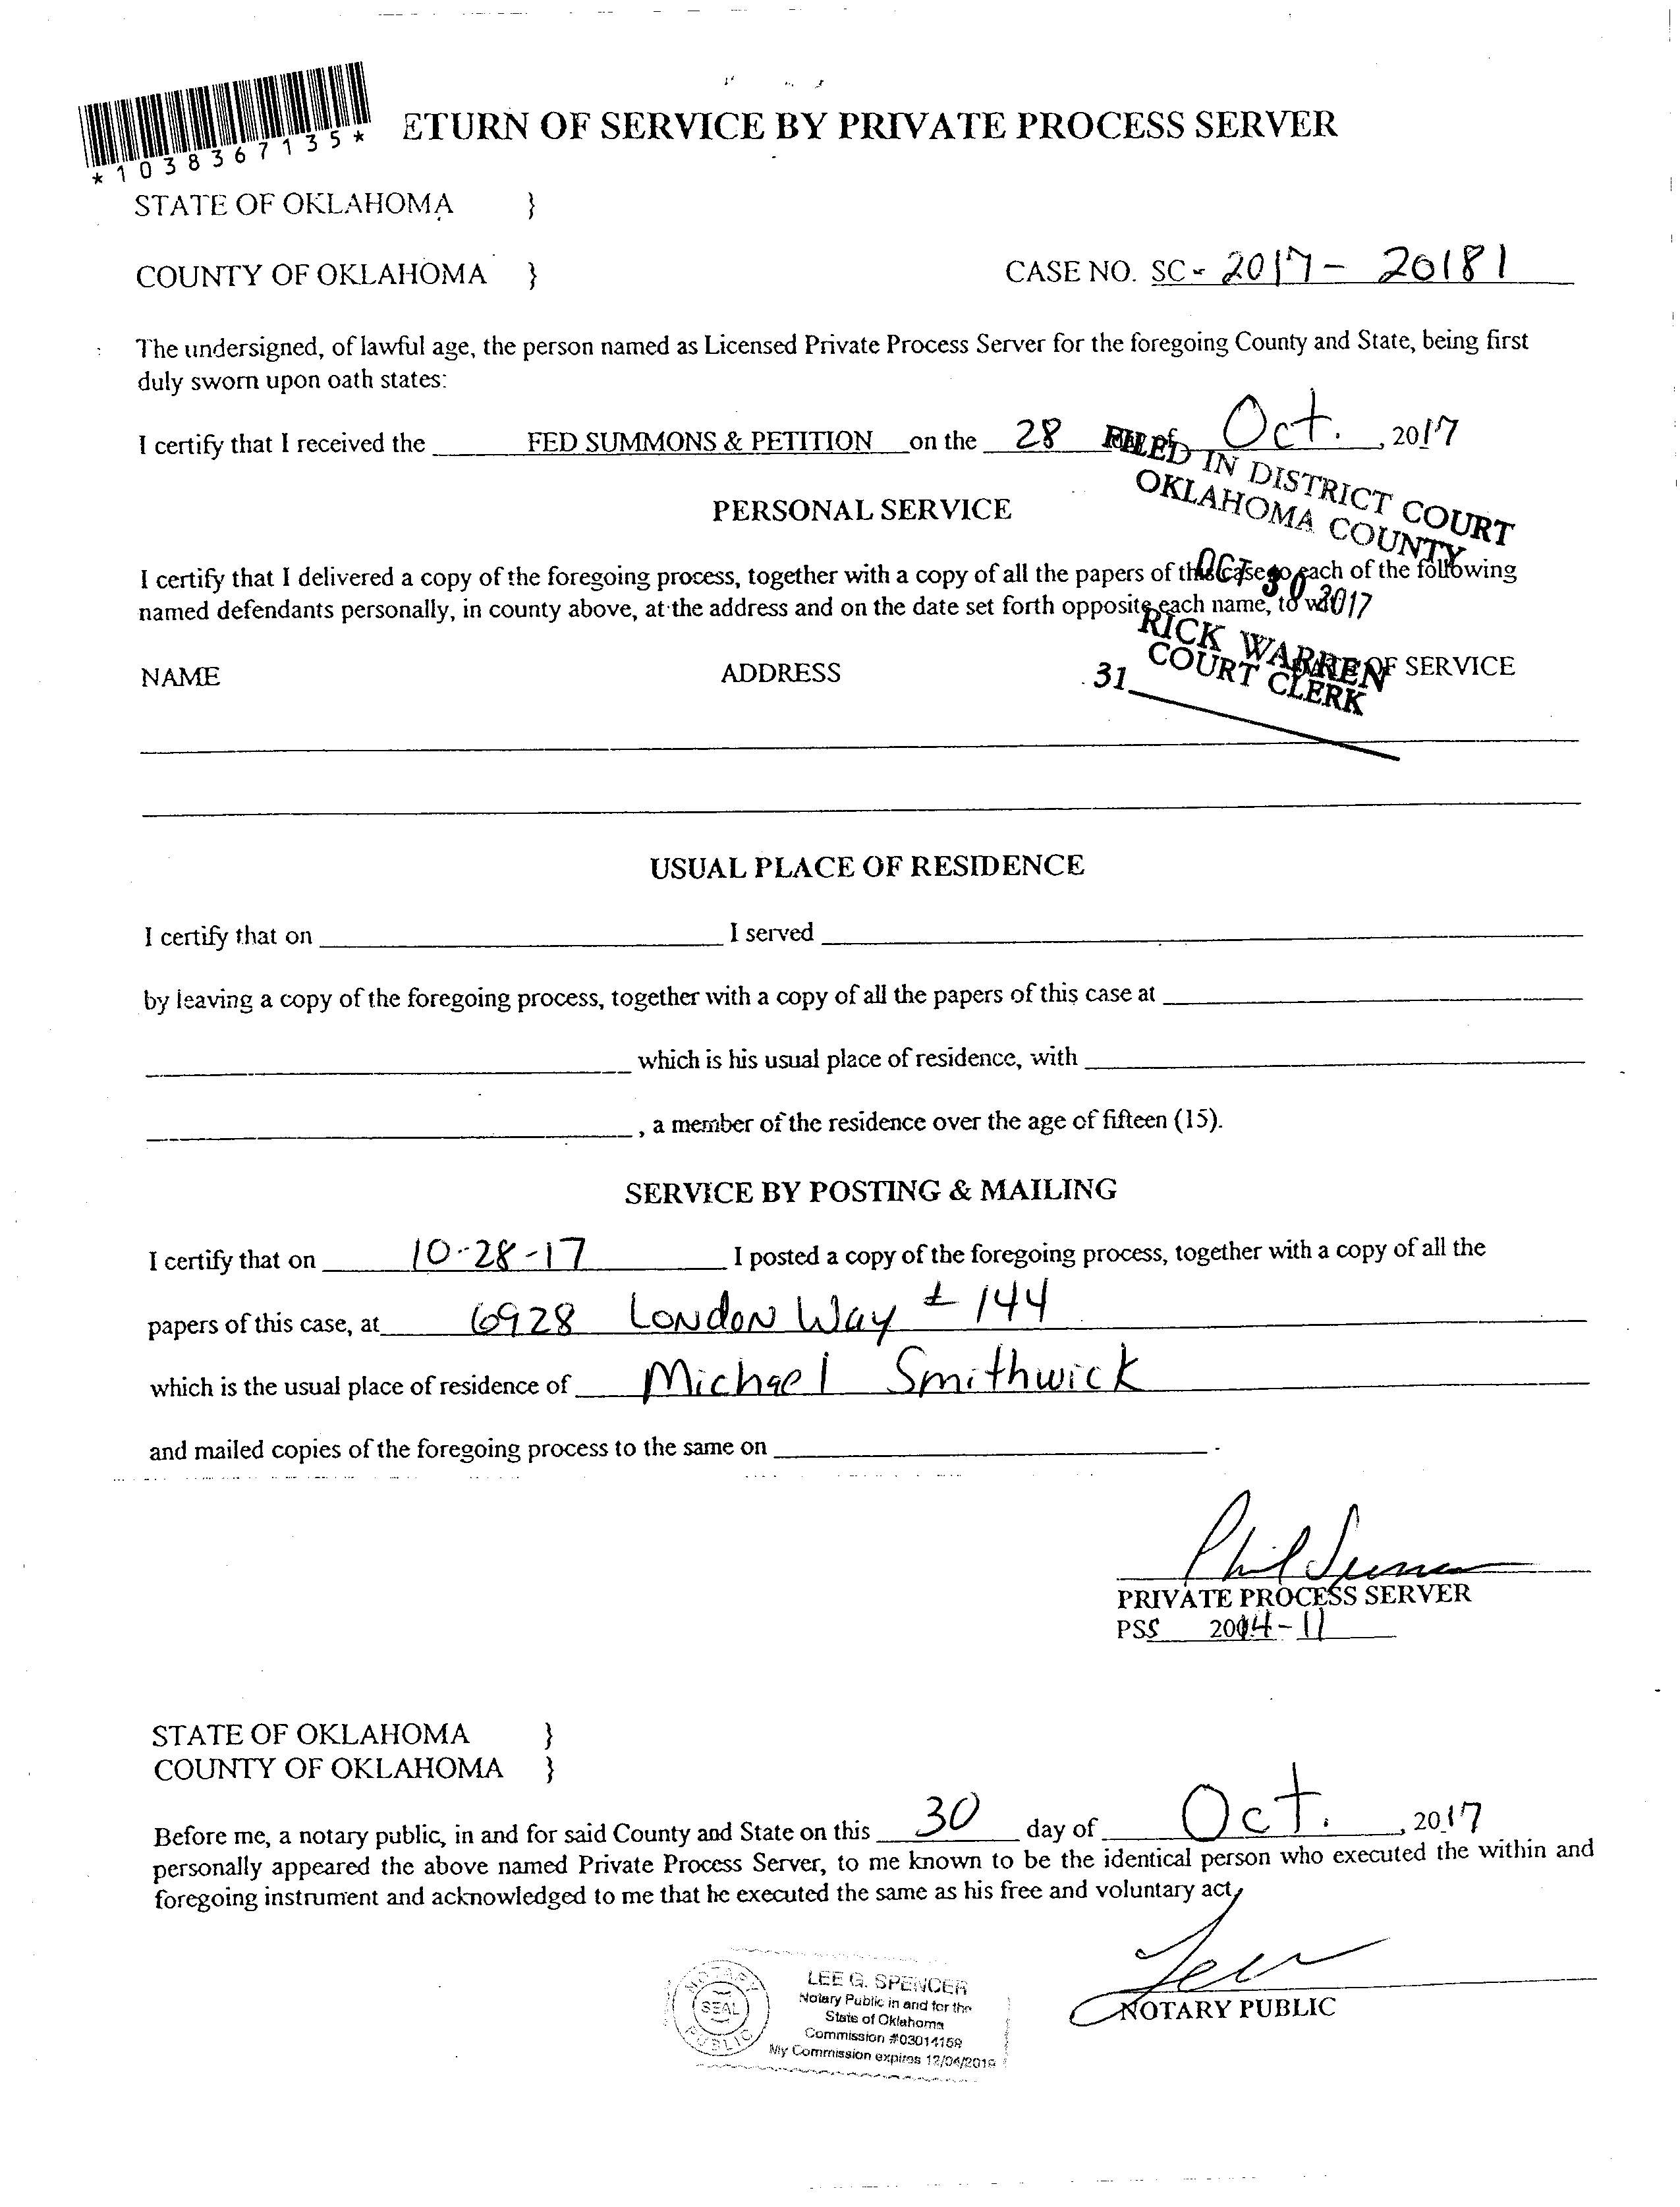 *1038367135*
ETURN OF SERVICE BY PRIVATE PROCESS SERVER
STATE OF OKLAHOMA }
COUNTY OF OKLAHOMA } CASE NO. SC - 2017 - 20181
The undersigned, of lawful age, the person named as Licensed Private Process Server for the foregoing County and State, being first
duly sworn upon oath states:
I certify that I received the FED SUMMONS & PETITION on the 28 Oct. , 2017
FILED IN DISTRICT COURT
OKLAHOMA COUNTY
PERSONAL SERVICE
I certify that I delivered a copy of the foregoing process, together with a copy of all the papers of this case to each of the following
named defendants personally, in county above, at the address and on the date set forth opposite each name, to wit
OCT 30 2017
RICK WARREN
COURT CLERK
31
NAME ADDRESS OF SERVICE
USUAL PLACE OF RESIDENCE
I certify that on I served
by leaving a copy of the foregoing process, together with a copy of all the papers of this case at
which is his usual place of residence, with
, a member of the residence over the age of fifteen (15).
SERVICE BY POSTING & MAILING
I certify that on 10-28-17 I posted a copy of the foregoing process, together with a copy of all the
papers of this case, at 6928 London Way # 144
which is the usual place of residence of Michael Smithwick
and mailed copies of the foregoing process to the same on .
PRIVATE PROCESS SERVER
PSS 2014-11
STATE OF OKLAHOMA }
COUNTY OF OKLAHOMA }
Before me, a notary public, in and for said County and State on this 30 day of Oct. , 2017
personally appeared the above named Private Process Server, to me known to be the identical person who executed the within and
foregoing instrument and acknowledged to me that he executed the same as his free and voluntary act,
NOTARY PUBLIC
NOTARY PUBLIC
SEAL
LEE G. SPENCER
Notary Public in and for the
State of Oklahoma
Commission #03014159
My Commission expires 12/04/2019